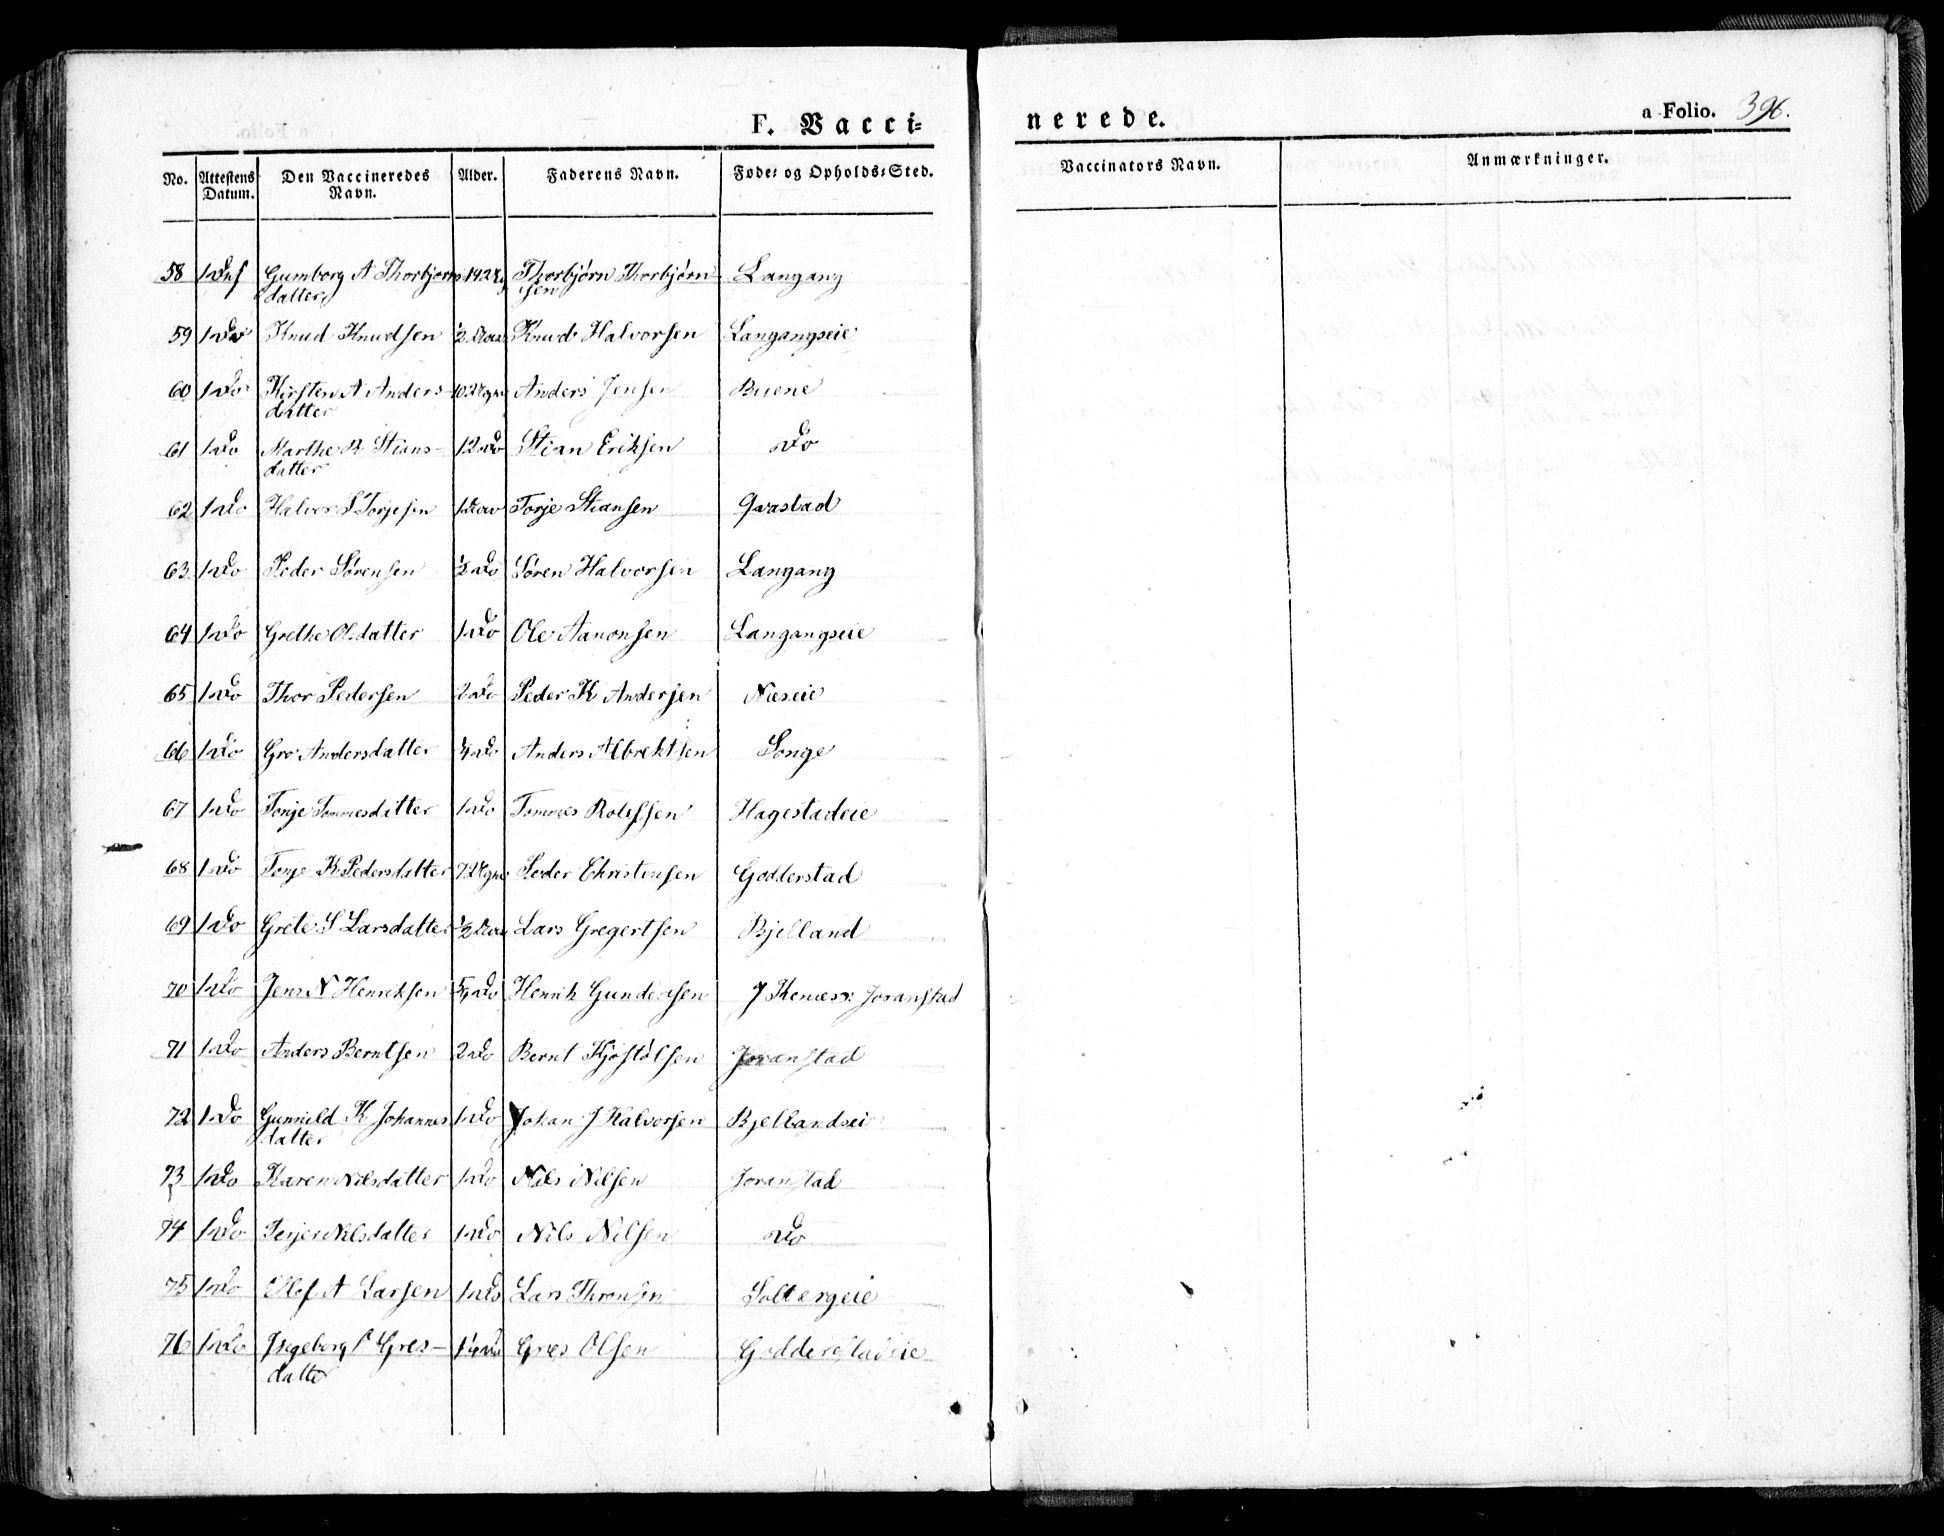 F. Vacci-
nerede.
a Folio. 396.
No. Attestens Datum. Den Vaccineredes Navn. Alder. Faderens Navn. Føde- og Opholds-Sted. Vaccinators Navn. Anmærkninger.
58 Gumborg A Thorbjorns 14 Thorbjørn Thorbjørn- Langang
datter sen
59 1 Do Knud Knudsen 1/2 Knud Halvorsen Langangseie
60 1 Do Kirsten A Anders- 10 Anders Jensen Buene
datter
61 1 Do Marthe Stians- 12 Do Stian Eriksen Do
datter
62 1 Do Halvor S Torjesen 1 Torje Stiansen Qvastad
63 1 Do Peder Sørensen 1/2 Do Søren Halvorsen Langang
64 1 Do Grethe Olsdatter 1 Do Ole Aanonsen Langangseie
65 1 Do Thor Pedersen 2 Do Peder K Andersen Næseie
66 1 Do Gro Andersdatter 1/4 Do Anders Albrektsen Songe
67 1 Do Tonje Tommesdatter 1 Do Tommes Rolefsen Hagestadeie
68 1 Do Tonje K Pedersdatter 7 Peder Christensen Godderstad
69 1 Do Grete S Larsdatter 1/2 Lars Gregertsen Bjelland
70 1 Do Jens N Henriksen 5/4 Do Henrik Gundersen Joranstad
71 1 Do Anders Berntsen 2 Do Bernt Kjøstølsen Joranstad
72 1 Do Gunnild K Johannes 1 Do Johan J Halvorsen Bjellandseie
datter
73 1 Do Karen Nilsdatter 1 Do Nils Nilsen Joranstad
74 1 Do Nilsdatter 1 Do Nils Nilsen Do
75 1 Do Olef A Larsen 1 Do Lars Thronsen Soltergeie
76 1 Do Ingeborg O Gres- Gres Olsen Godderstadeie
datter